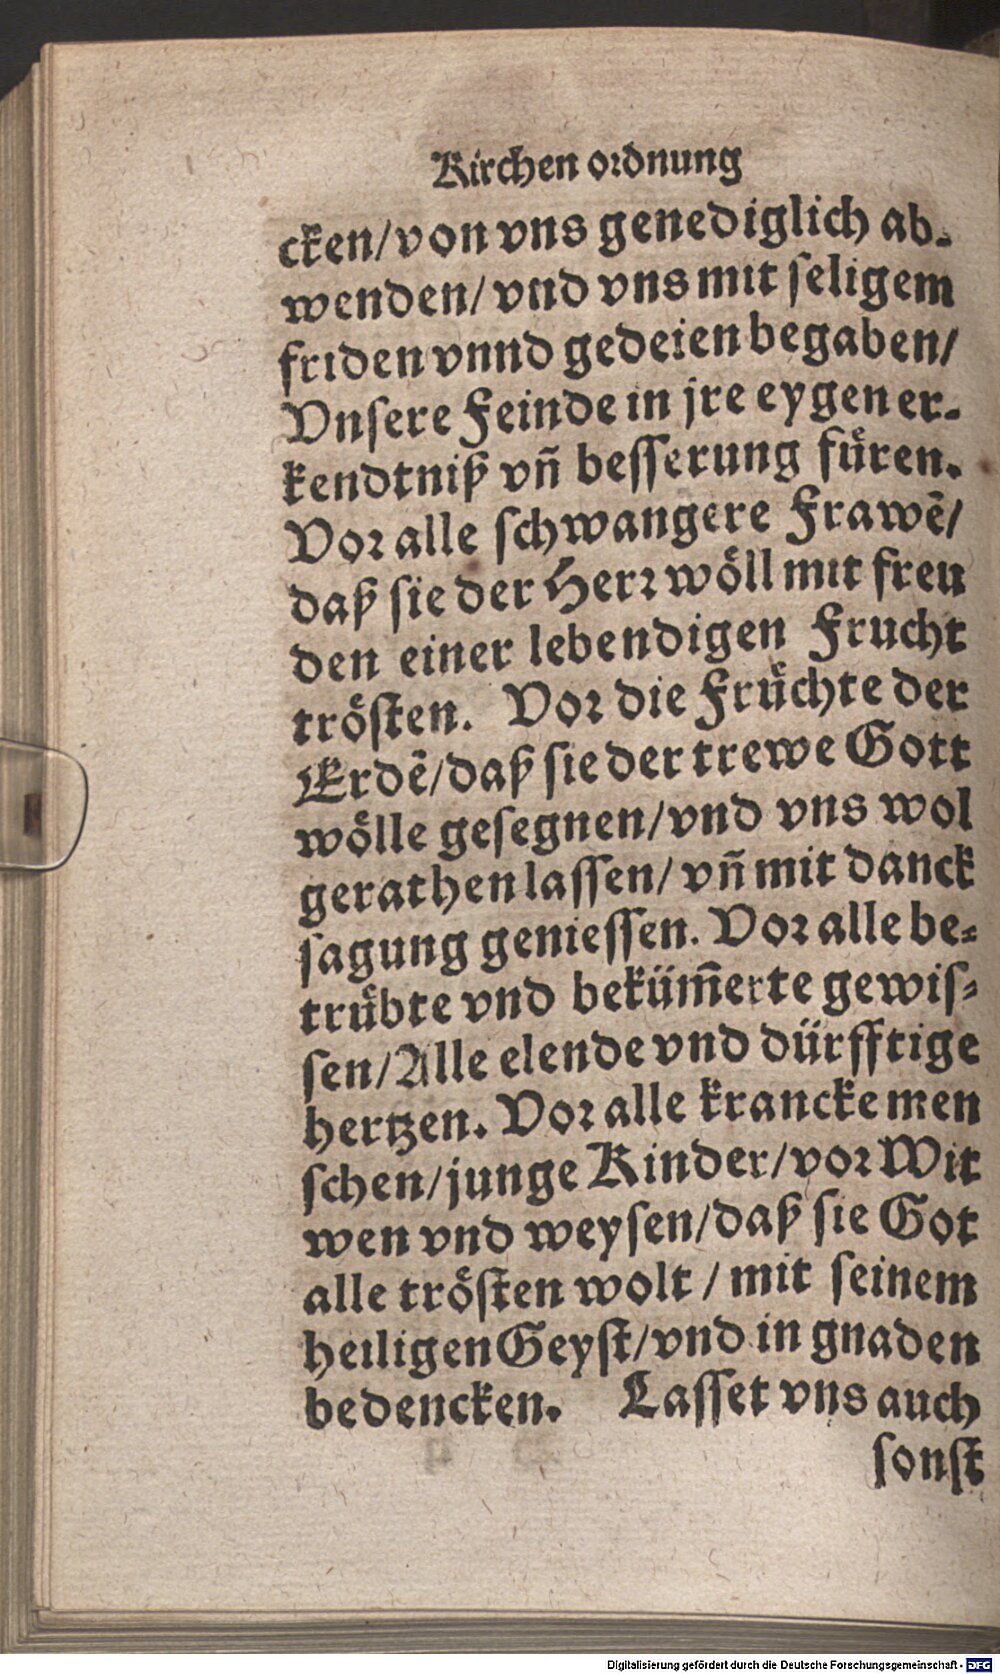 Kirchen ordnung
cken/von vns genediglich ab-
wenden/ vnd vns mit ſeligem
friden vnnd gedeien begaben/
Vnſere Feinde in jre eygen er-
kendtniß vn̄ beſſerung fuͤren.
Vor alle ſchwangere Frawē/
daß ſie der Herr woͤll mit freu
den einer lebendigen Frucht
troͤſten. Vor die Fruͤchte der
Erdē/daß ſie der trewe Gott
woͤlle geſegnen/vnd vns wol
gerathen laſſen/ vn̄ mit danck
ſagung genieſſen. Vor alle be⸗
truͤbte vnd bekümm̄erte gewiſ⸗
ſen/Alle elende vnd dürfftige
hertzen. Vor alle krancke men
ſchen/junge Kinder/vor Wit
wen vnd weyſen/daß ſie Got
alle troͤſten wolt / mit ſeinem
heiligen Geyſt/vnd in gnaden
bedencken. Laſſet vns auch
ſonſt
Digitalisierung gefördert durch die Deutsche Forschungsgemeinschaft - DFG